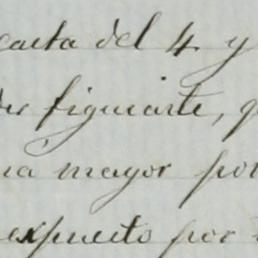 carta del 4 y
figurarte,
mayor por
expuesto por